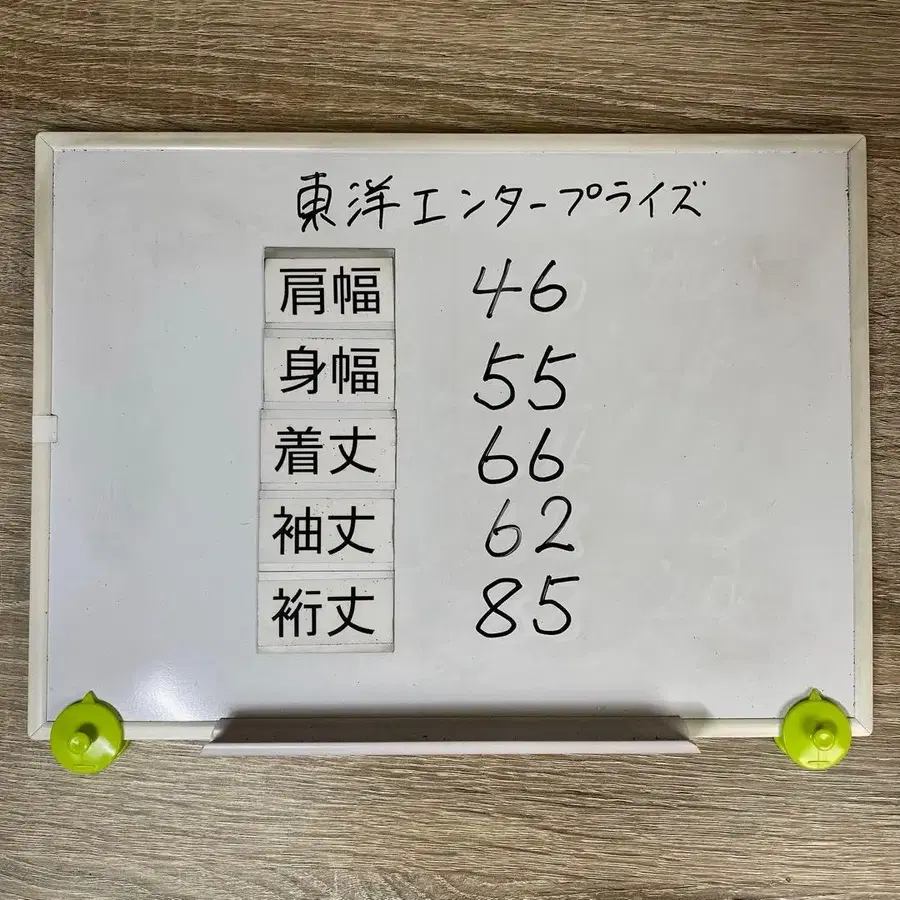 東洋エンタープライズ
肩幅 46
身幅 55
着丈 66
袖丈 62
裄丈 85